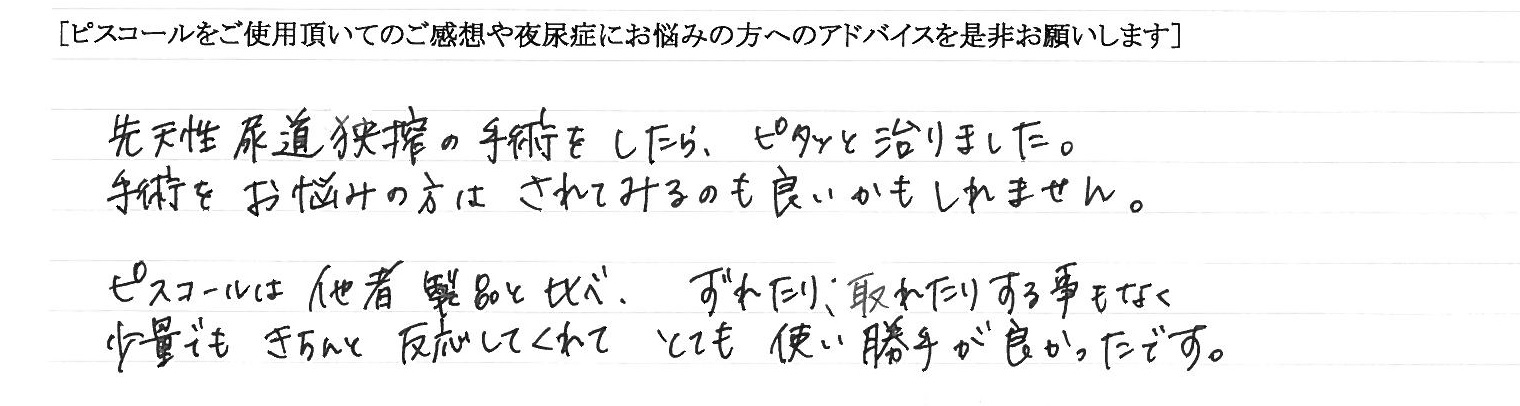 [ピスコールをご使用頂いてのご感想や夜尿症にお悩みの方へのアドバイスを是非お願いします]
先天性尿道狭搾の手術をしたら、ピタッと治りました。
手術をお悩みの方はされてみるのも良いかもしれません。
ピスコールは他者製品と比べ、ずれたり、取れたりする事もなく
少量でもきちんと反応してくれてとても使い勝手が良かったです。